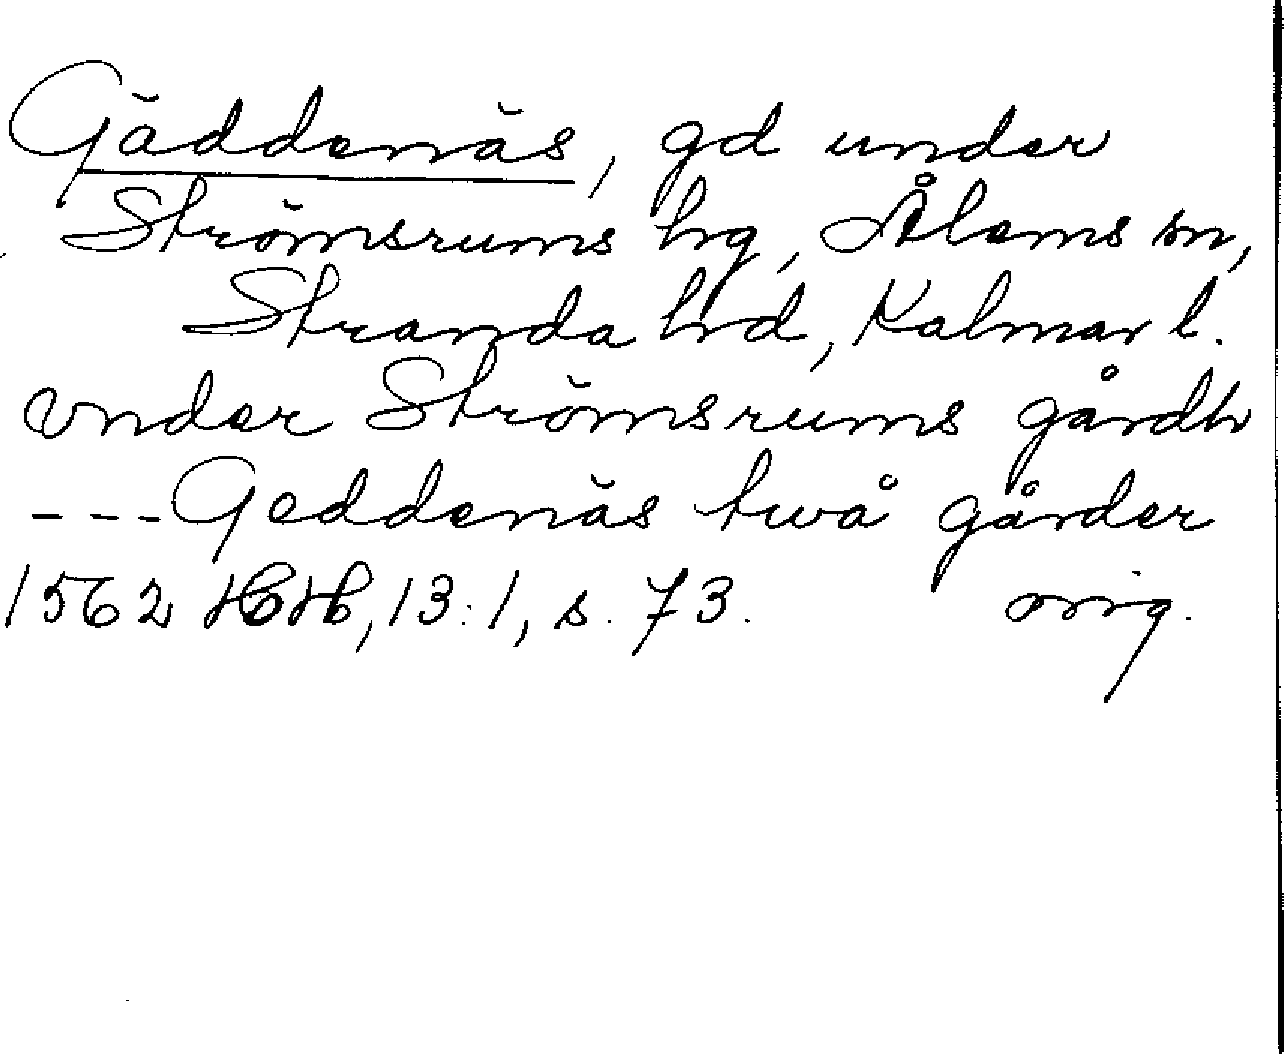 Gäddenäs, gd under
Strömsrums hg, Ålems sn,
Stranda hd, Kalmar l.
vnder Strömsrums gårdh
---Geddenäs twå gårder
1562 HH, 13:1, s. 73. orig.